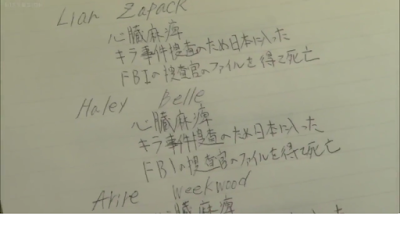 Lian Zapack
心臓麻痺
キラ事件捜査のため日本に入った
FBIの捜査官のファイルを得て死亡
Haley Belle
心臓麻痺
キラ事件捜査のため日本に入った
FBIの捜査官のファイルを得て死亡
Arire Weekwood
心臓麻痺